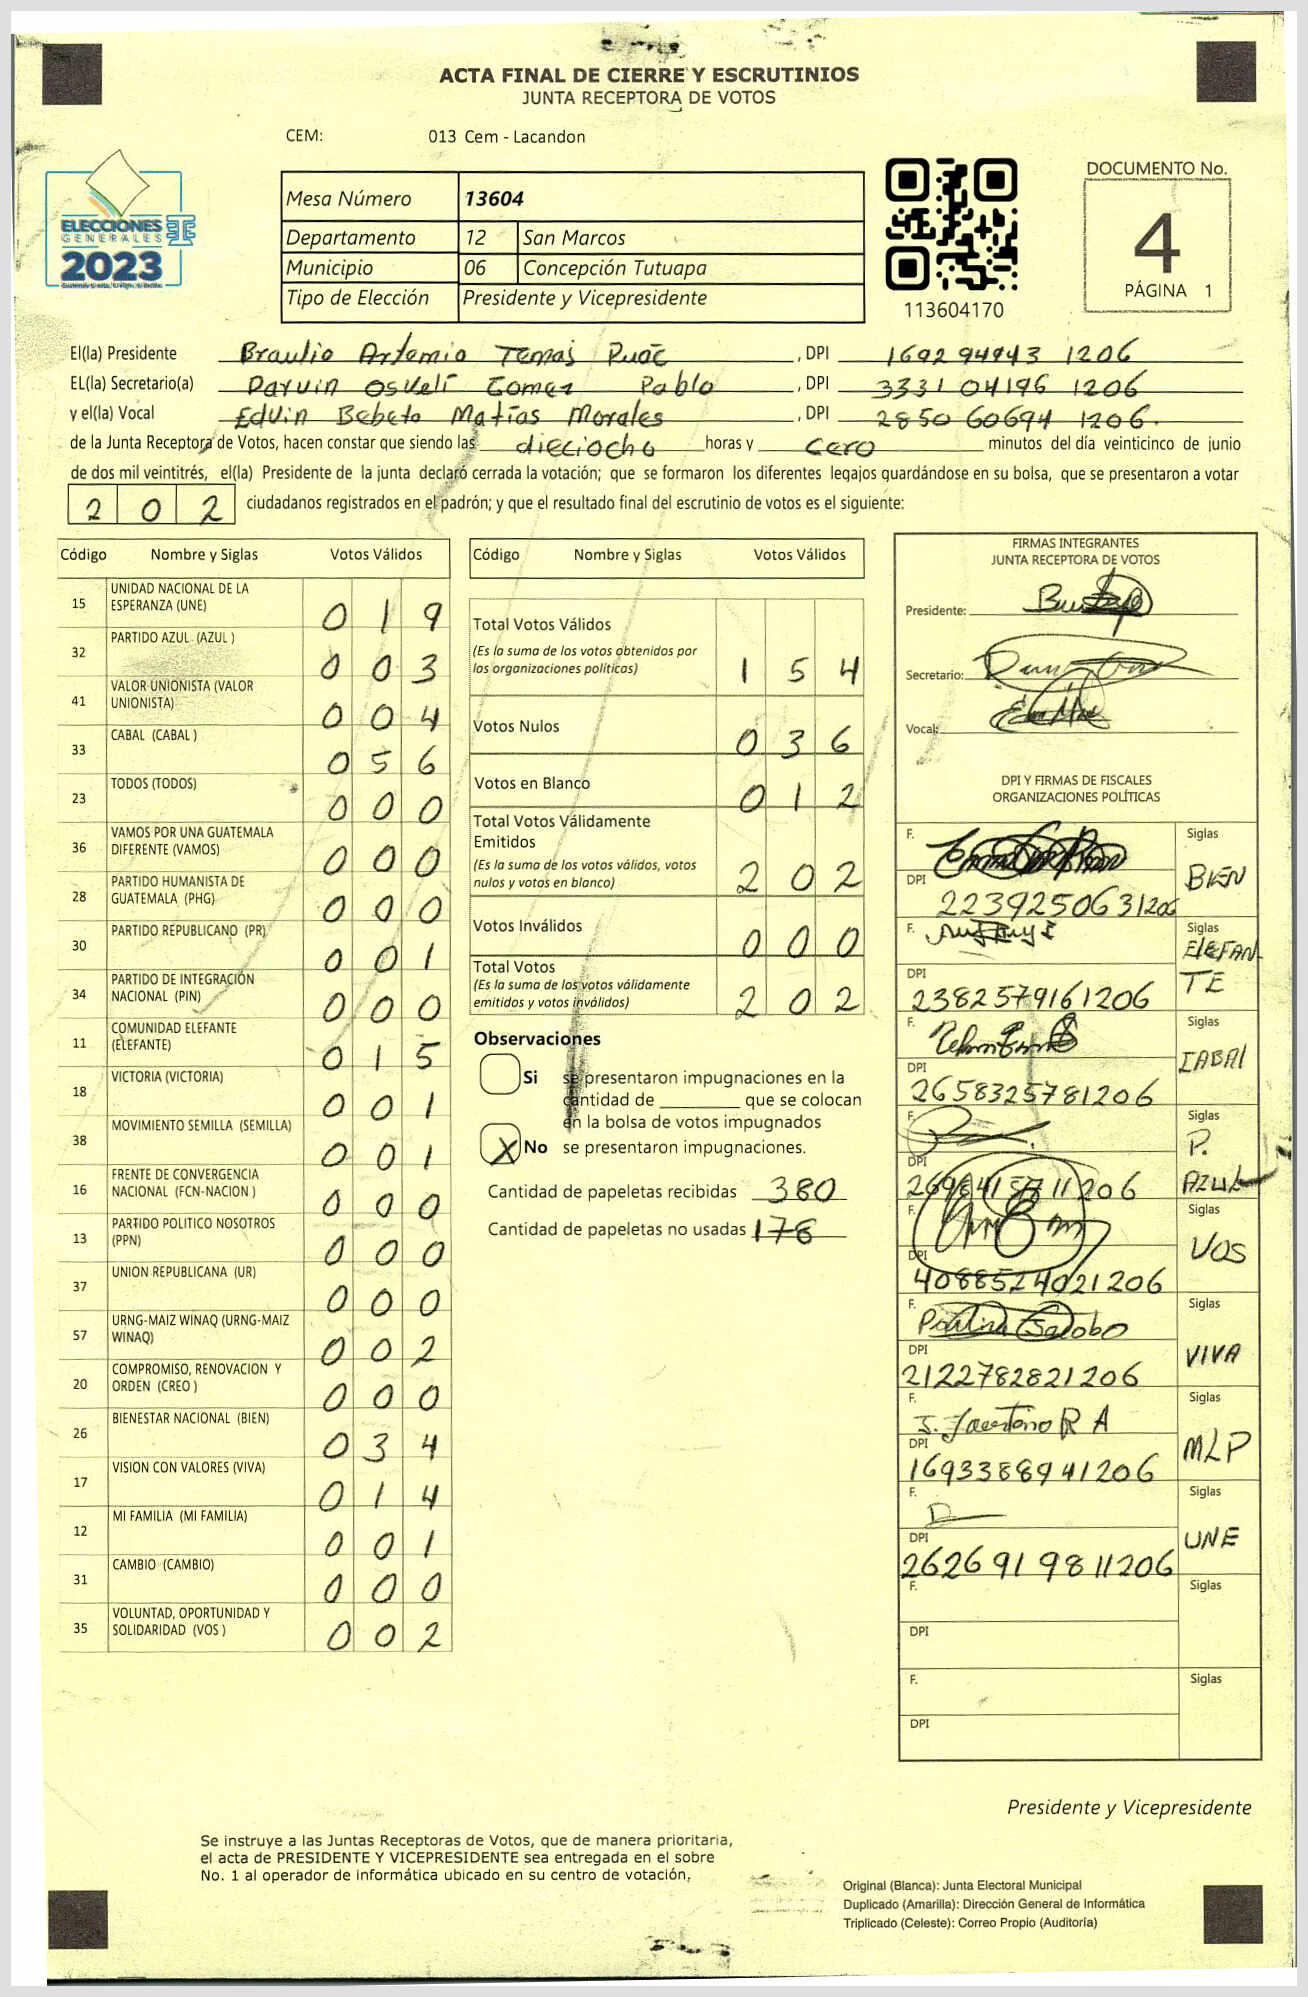 ACTA FINAL DE CIERRE Y ESCRUTINIOS
JUNTA RECEPTORA DE VOTOS
CEM: 013 Cem - Lacandon
ELECCIONES
GENERALES
2023
Mesa Número 13604
Departamento 12 San Marcos
Municipio 06 Concepción Tutuapa
Tipo de Elección Presidente y Vicepresidente
113604170
DOCUMENTO No.
4
PÁGINA 1
El(la) Presidente Braulio Artemio Temaj Puac, DPI 1692 94943 1206
EL(la) Secretario(a) Darvin Oskelí Gomez Pablo, DPI 3331 04196 1206
y el(la) Vocal Edvin Bebeto Matías Morales, DPI 2850 60694 1206.
de la Junta Receptora de Votos, hacen constar que siendo las dieciocho horas y cero minutos del día veinticinco de junio
de dos mil veintitrés, el(la) Presidente de la junta declaró cerrada la votación; que se formaron los diferentes legajos guardándose en su bolsa, que se presentaron a votar
202 ciudadanos registrados en el padrón; y que el resultado final del escrutinio de votos es el siguiente:
Código Nombre y Siglas Votos Válidos
15 UNIDAD NACIONAL DE LA ESPERANZA (UNE) 019
32 PARTIDO AZUL (AZUL ) 003
41 VALOR UNIONISTA (VALOR UNIONISTA) 004
33 CABAL (CABAL ) 056
23 TODOS (TODOS) 000
36 VAMOS POR UNA GUATEMALA DIFERENTE (VAMOS) 000
28 PARTIDO HUMANISTA DE GUATEMALA (PHG) 000
30 PARTIDO REPUBLICANO (PR) 001
34 PARTIDO DE INTEGRACIÓN NACIONAL (PIN) 000
11 COMUNIDAD ELEFANTE (ELEFANTE) 015
18 VICTORIA (VICTORIA) 001
38 MOVIMIENTO SEMILLA (SEMILLA) 001
16 FRENTE DE CONVERGENCIA NACIONAL (FCN-NACION ) 000
13 PARTIDO POLITICO NOSOTROS (PPN) 000
37 UNION REPUBLICANA (UR) 000
57 URNG-MAIZ WINAQ (URNG-MAIZ WINAQ) 002
20 COMPROMISO, RENOVACION Y ORDEN (CREO ) 000
26 BIENESTAR NACIONAL (BIEN) 034
17 VISION CON VALORES (VIVA) 014
12 MI FAMILIA (MI FAMILIA) 001
31 CAMBIO (CAMBIO) 000
35 VOLUNTAD, OPORTUNIDAD Y SOLIDARIDAD (VOS ) 002
Código Nombre y Siglas Votos Válidos
Total Votos Válidos
(Es la suma de los votos obtenidos por
las organizaciones políticas) 154
Votos Nulos 036
Votos en Blanco 012
Total Votos Válidamente
Emitidos
(Es la suma de los votos válidos, votos
nulos y votos en blanco) 202
Votos Inválidos 000
Total Votos
(Es la suma de los votos válidamente
emitidos y votos inválidos) 202
Observaciones
Si se presentaron impugnaciones en la
cantidad de ________ que se colocan
en la bolsa de votos impugnados
X No se presentaron impugnaciones.
Cantidad de papeletas recibidas 380
Cantidad de papeletas no usadas 178
FIRMAS INTEGRANTES
JUNTA RECEPTORA DE VOTOS
Presidente:
Secretario:
Vocal:
DPI Y FIRMAS DE FISCALES
ORGANIZACIONES POLÍTICAS
F. Siglas BIEN
DPI 2239250631206
F. Siglas ELEFANTE
DPI 2382579161206
F. Siglas CABAL
DPI 2658325781206
F. Siglas P. AZUL
DPI
F. Siglas VOS
DPI 4088524021206
F. Siglas VIVA
DPI 2122782821206
F. J. Faustino R A Siglas MLP
DPI 1693388941206
F. Siglas UNE
DPI 2626919811206
F. Siglas
DPI
F. Siglas
DPI
Presidente y Vicepresidente
Se instruye a las Juntas Receptoras de Votos, que de manera prioritaria,
el acta de PRESIDENTE Y VICEPRESIDENTE sea entregada en el sobre
No. 1 al operador de informática ubicado en su centro de votación.
Original (Blanca): Junta Electoral Municipal
Duplicado (Amarilla): Dirección General de Informática
Triplicado (Celeste): Correo Propio (Auditoría)